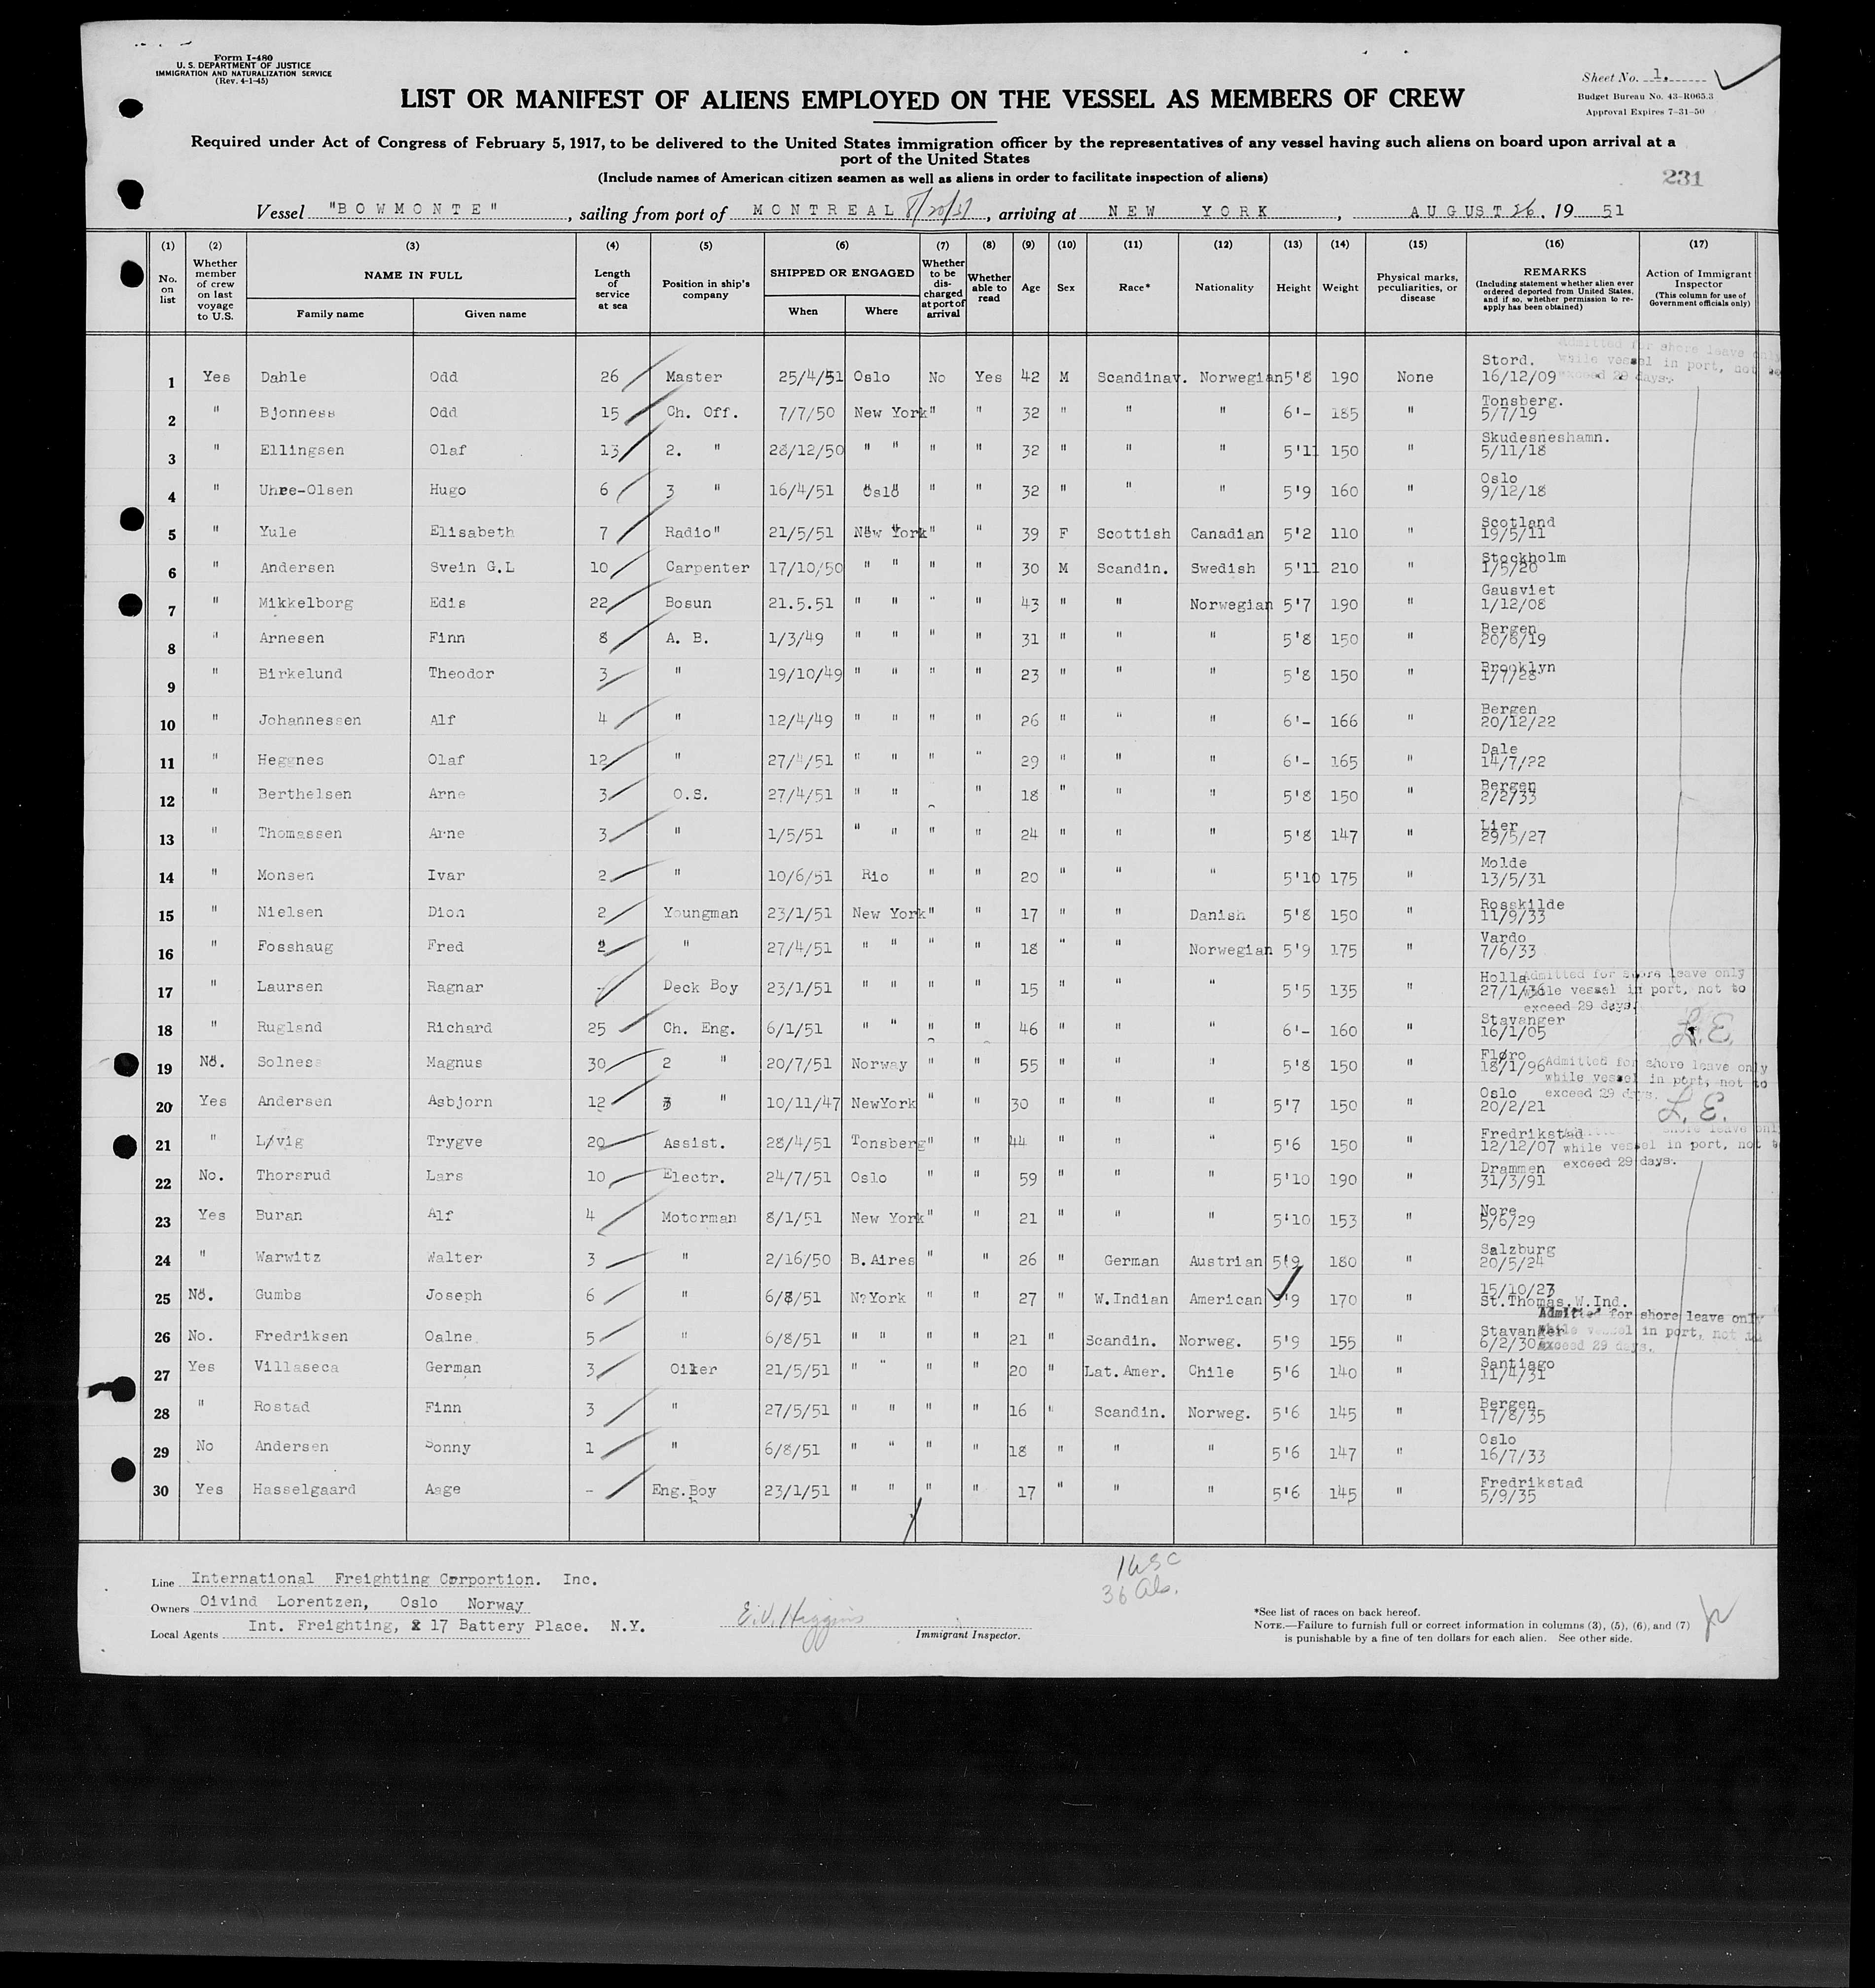 Form I-480
U. S. DEPARTMENT OF JUSTICE
IMMIGRATION AND NATURALIZATION SERVICE
(Rev. 4-1-45)
Sheet No. 1.
Budget Bureau No. 43-R065.3
Approval Expires 7-31-50
LIST OR MANIFEST OF ALIENS EMPLOYED ON THE VESSEL AS MEMBERS OF CREW
Required under Act of Congress of February 5, 1917, to be delivered to the United States immigration officer by the representatives of any vessel having such aliens on board upon arrival at a
port of the United States
(Include names of American citizen seamen as well as aliens in order to facilitate inspection of aliens)
231
Vessel "BOWMONTE", sailing from port of MONTREAL 8/20/51, arriving at NEW YORK, AUGUST 26, 19 51
(1) (2) (3) (4) (5) (6) (7) (8) (9) (10) (11) (12) (13) (14) (15) (16) (17)
No. on list
Whether member of crew on last voyage to U.S.
NAME IN FULL
Family name Given name
Length of service at sea
Position in ship's company
SHIPPED OR ENGAGED
When Where
Whether to be discharged at port of arrival
Whether able to read
Age
Sex
Race*
Nationality
Height
Weight
Physical marks, peculiarities, or disease
REMARKS
(Including statement whether alien ever ordered deported from United States, and if so, whether permission to reapply has been obtained)
Action of Immigrant Inspector
(This column for use of Government officials only)
Admitted for shore leave only
while vessel in port, not to
exceed 29 days.
1 Yes Dahle Odd 26 Master 25/4/51 Oslo No Yes 42 M Scandinav. Norwegian 5'8 190 None Stord. 16/12/09
2 " Bjonness Odd 15 Ch. Off. 7/7/50 New York " " 32 " " " 6'- 185 " Tonsberg. 5/7/19
3 " Ellingsen Olaf 13 2. " 28/12/50 " " " " 32 " " " 5'11 150 " Skudesneshamn. 5/11/18
4 " Uhre-Olsen Hugo 6 3 " 16/4/51 Oslo " " 32 " " " 5'9 160 " Oslo 9/12/18
5 " Yule Elisabeth 7 Radio " 21/5/51 New York " " 39 F Scottish Canadian 5'2 110 " Scotland 19/5/11
6 " Andersen Svein G.L 10 Carpenter 17/10/50 " " " " 30 M Scandin. Swedish 5'11 210 " Stockholm 1/5/20
7 " Mikkelborg Edis 22 Bosun 21.5.51 " " " " 43 " " Norwegian 5'7 190 " Gausviet 1/12/08
8 " Arnesen Finn 8 A. B. 1/3/49 " " " " 31 " " " 5'8 150 " Bergen 20/6/19
9 " Birkelund Theodor 3 " 19/10/49 " " " " 23 " " " 5'8 150 " Brooklyn 1/7/28
10 " Johannessen Alf 4 " 12/4/49 " " " " 26 " " " 6'- 166 " Bergen 20/12/22
11 " Heggnes Olaf 12 " 27/4/51 " " " " 29 " " " 6'- 165 " Dale 14/7/22
12 " Berthelsen Arne 3 O.S. 27/4/51 " " " 18 " " " 5'8 150 " Bergen 2/2/33
13 " Thomassen Arne 3 " 1/5/51 " " " " 24 " " " 5'8 147 " Lier 29/5/27
14 " Monsen Ivar 2 " 10/6/51 Rio " " 20 " " " 5'10 175 " Molde 13/5/31
15 " Nielsen Dion 2 Youngman 23/1/51 New York " " 17 " " Danish 5'8 150 " Rosskilde 11/9/33
16 " Fosshaug Fred 2 " 27/4/51 " " " " 18 " " Norwegian 5'9 175 " Vardo 7/6/33
17 " Laursen Ragnar - Deck Boy 23/1/51 " " " " 15 " " " 5'5 135 " Holla 27/1/36
Admitted for shore leave only
while vessel in port, not to
exceed 29 days.
18 " Rugland Richard 25 Ch. Eng. 6/1/51 " " " " 46 " " " 6'- 160 " Stavanger 16/1/05 L.E.
19 No. Solness Magnus 30 2 " 20/7/51 Norway " " 55 " " " 5'8 150 " Fløro 18/1/96
Admitted for shore leave only
while vessel in port, not to
exceed 29 days.
20 Yes Andersen Asbjorn 12 3 " 10/11/47 NewYork " " 30 " " " 5'7 150 " Oslo 20/2/21 L. E.
21 " L/vig Trygve 20 Assist. 28/4/51 Tonsberg " " 44 " " " 5'6 150 " Fredrikstad 12/12/07
shore leave only
while vessel in port, not to
exceed 29 days.
22 No. Thorsrud Lars 10 Electr. 24/7/51 Oslo " " 59 " " " 5'10 190 " Drammen 31/3/91
23 Yes Buran Alf 4 Motorman 8/1/51 New York " " 21 " " " 5'10 153 " Nore 5/6/29
24 " Warwitz Walter 3 " 2/16/50 B.Aires " " 26 " German Austrian 5'9 180 " Salzburg 20/5/24
25 No. Gumbs Joseph 6 " 6/8/51 N.York " " 27 " W.Indian American 5'9 170 " 15/10/23 St.Thomas.W.Ind.
Admitted for shore leave only
while vessel in port, not to
exceed 29 days.
26 No. Fredriksen Oalne 5 " 6/8/51 " " " " 21 " Scandin. Norweg. 5'9 155 " Stavanger 6/2/30
27 Yes Villaseca German 3 Oiler 21/5/51 " " " " 20 " Lat.Amer. Chile 5'6 140 " Santiago 11/4/31
28 " Rostad Finn 3 " 27/5/51 " " " " 16 " Scandin. Norweg. 5'6 145 " Bergen 17/8/35
29 No Andersen Ponny 1 " 6/8/51 " " " " 18 " " " 5'6 147 " Oslo 16/7/33
30 Yes Hasselgaard Aage - Eng.Boy 23/1/51 " " " " 17 " " " 5'6 145 " Fredrikstad 5/9/35
36 Als.
Line International Freighting Corportion. Inc.
Owners Oivind Lorentzen, Oslo Norway
Local Agents Int. Freighting, 17 Battery Place. N.Y.
E.V. Higgins
Immigrant Inspector.
*See list of races on back hereof.
NOTE.—Failure to furnish full or correct information in columns (3), (5), (6), and (7)
is punishable by a fine of ten dollars for each alien. See other side.